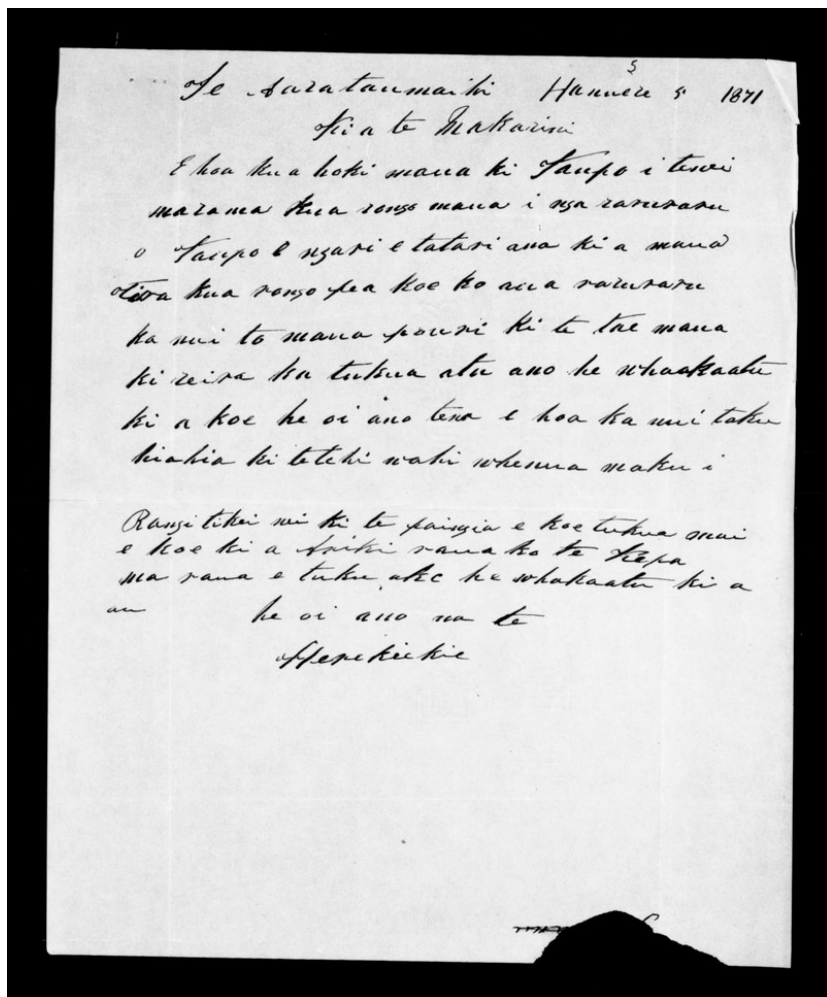 Te Aurataumaihi Hanuere 5 1871
Ki a te Makarini
E hoa kua hoki maua ki Taupo i tenei
marama kua rongo maua i nga raruraru
o Taupo e ngari e tatari ana ki a maua
Otira kua rongo pea koe ko aua raruraru
ka nui to maua pouri ki te tae maua
ki reira ka tukua atu ano he whaakaatu
ki a koe he oi ano tena e hoa ka nui taku
hiahia ki tetehi wahi whenua maku i
Rangitikei nei ki te paingia e koe tukua mai
e koe ki a Ariki raua ko te Kepa
ma raua e tuku ake he whakaatu ki a
au he oi ano na te
Herekiekie